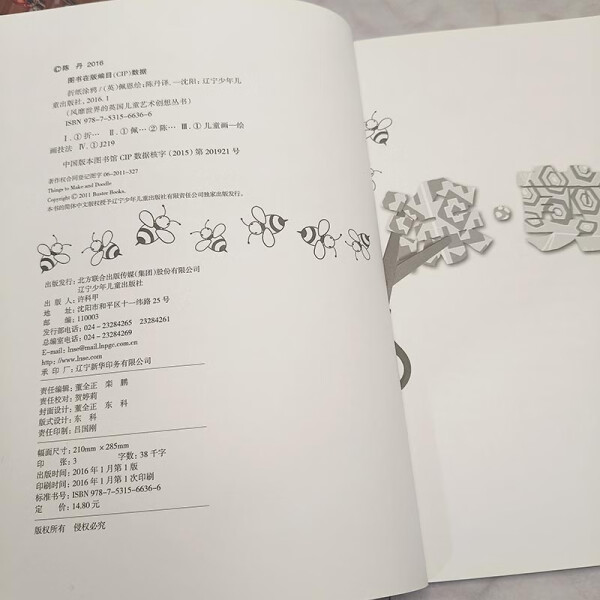 ©陈 丹 2016
图书在版编目(CIP)数据
折纸涂鸦/(英)佩恩绘;陈丹译.—沈阳:辽宁少年儿
童出版社,2016.1
(风靡世界的英国儿童艺术创想丛书)
ISBN 978-7-5315-6636-6
Ⅰ.①折… Ⅱ.①佩…②陈… Ⅲ.①儿童画—绘
画技法 Ⅳ.①J219
中国版本图书馆 CIP 数据核字(2015)第 201921 号
著作权合同登记图字 06-2011-327
Things to Make and Doodle
Copyright © 2011 Buster Books.
本书的简体中文版权授予辽宁少年儿童出版社有限责任公司独家出版发行。
出版发行:北方联合出版传媒(集团)股份有限公司
辽宁少年儿童出版社
出 版 人:许科甲
地 址:沈阳市和平区十一纬路 25 号
邮 编:110003
发行部电话:024-23284265 23284261
总编室电话:024-23284269
E-mail:lnse@mail.lnpgc.com.cn
http://www.lnse.com
承 印 厂:辽宁新华印务有限公司
责任编辑:董全正 栾 鹏
责任校对:贺婷莉
封面设计:董全正 东 科
版式设计:东 科
责任印制:吕国刚
幅面尺寸:210mm×285mm
印 张:3 字数:38 千字
出版时间:2016 年 1 月第 1 版
印刷时间:2016 年 1 月第 1 次印刷
标准书号:ISBN 978-7-5315-6636-6
定 价:14.80 元
版权所有 侵权必究